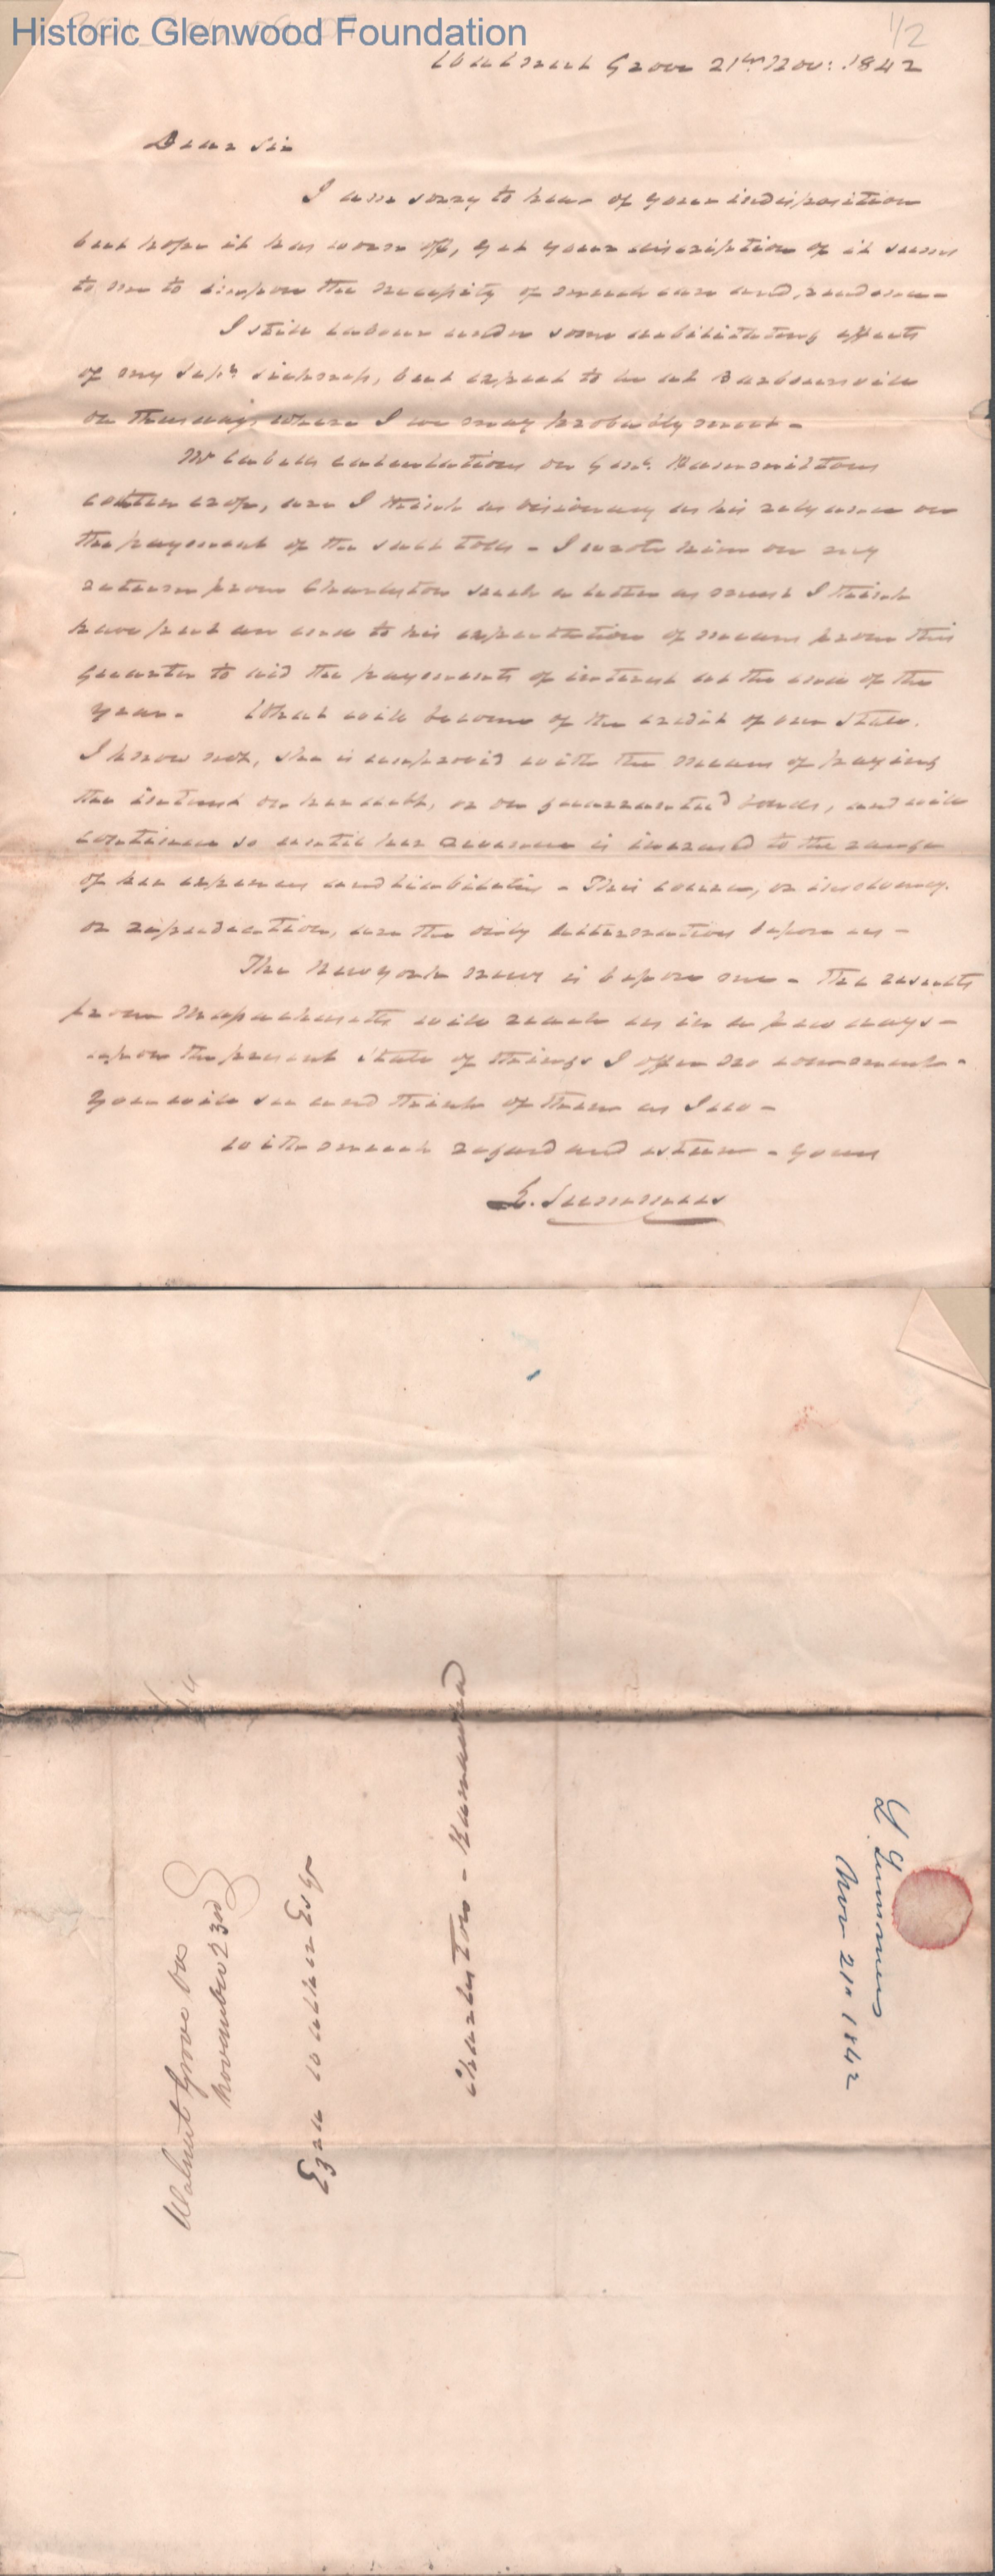 Historic Glenwood Foundation
1/2
Walnut Grove 21st Nov: 1842
Dear Sir
I am sorry to hear of your indisposition
but hope it has worn off, yet your discription of it seems
to me to impose the necessity of much care and prudence -
I still labour under some debilitating effects
of my Sept. sickness, but expect to be at Barboursville
on Thursday, where I we may probably meet -
Mr Cabells calculations on Genl.
cotton crop, are I think as visionary as his relyance on
the payment of the salt tolls - I wrote him on my
return from Charleston such a letter as must I think
have put an end to his expectation of means from this
quarter to aid the payments of interest at the end of the
year. What will become of the credit of our State.
I know not, she is unprovid with the means of paying
the interest on her debt, or on guaranteed bonds, and will
continue so until her revenue is increased to the range
of her expenses and liabilities - This course, or insolvency.
or repudiation, are the only alternatives before us -
The New york news is before me - The results
from Massachusetts will reach us in a few days -
upon the present State of things I offer no comment -
You will see and think of them as I do -
with much regard and esteem - yours
L. Summers
Walnut Grove Va
November 23rd
Ezra Walker Esqr
Charleston - Kanawha
L Summers
Nov 21" 1842